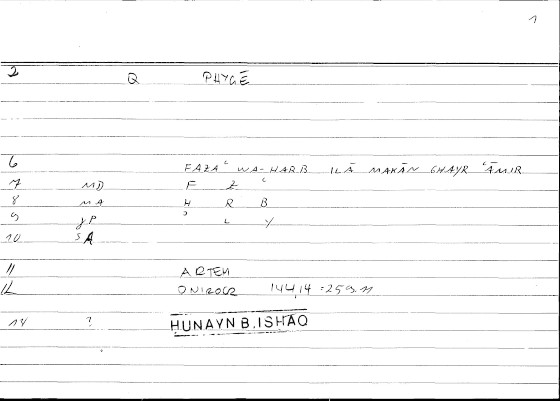 1
2 Q PHYGĒ
6 FAZAʿ WA-HARB ILĀ MAKĀN GHAYR ʿĀMIR
7 MD F Z ʿ
8 MA H R B
9 JP ʾ L Y
10 SA
11 ARTEM
12 ONIROCR 144,14 = 259.11
14 ? HUNAYN B. ISHAQ